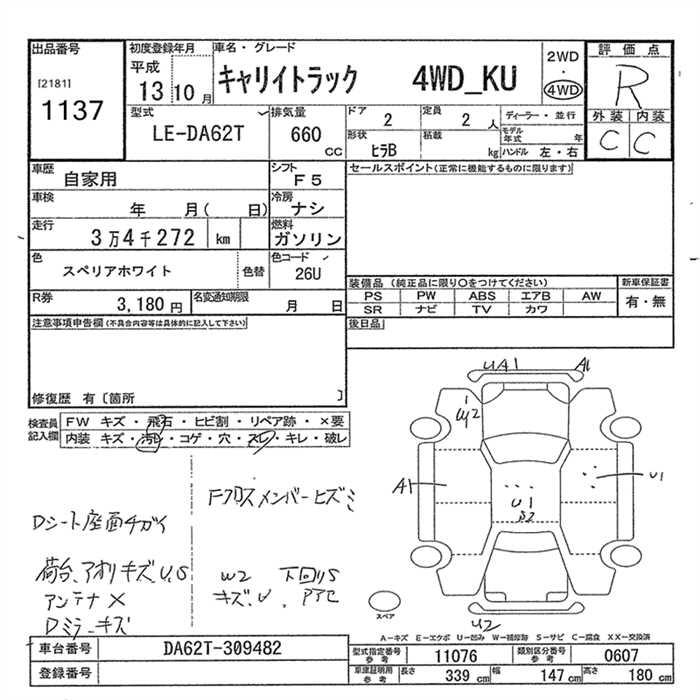 出品番号
[2181]
1137
初度登録年月
平成
13 10 月
車名・グレード
キャリイトラック 4WD_KU
2WD
・
4WD
評価点
R
外装 内装
C C
型式
LE-DA62T
排気量
660 cc
ドア
2
定員
2 人
形状
ヒラB
積載
kg
ディーラー・並行
モデル年式 年
ハンドル 左・右
車歴
自家用
シフト
F5
セールスポイント(正常に機能するものに限ります)
車検
年 月( 日)
冷房
ナシ
走行
3万4千272 km
燃料
ガソリン
色
スペリアホワイト
色替
色コード
26U
装備品 (純正品に限り○をつけてください)
PS PW ABS エアB AW
SR ナビ TV カワ
新車保証書
有・無
R券
3,180 円
名変通知期限
月 日
後日品
注意事項申告欄(不具合内容等は具体的に記入して下さい)
修復歴 有〔箇所 〕
検査員記入欄
FW キズ・飛石・ヒビ割・リペア跡・×要
内装 キズ・汚レ・コゲ・穴・スレ・キレ・破レ
UA1 A1
W2
A1
U1
U1
S2
U2
Fクロスメンバーヒズミ
Dシート座面チガイ
荷台、アオリキズU,S
アンテナ×
Dミラーキズ
W2 下回りS
キズ、U
スペア
A-キズ E-エクボ U-凹み W-補修跡 S-サビ C-腐食 XX-交換済
車台番号
DA62T-309482
登録番号
型式指定番号 参考
11076
類別区分番号 参考
0607
車庫証明用 参考
長さ 339 cm
幅 147 cm
高さ 180 cm